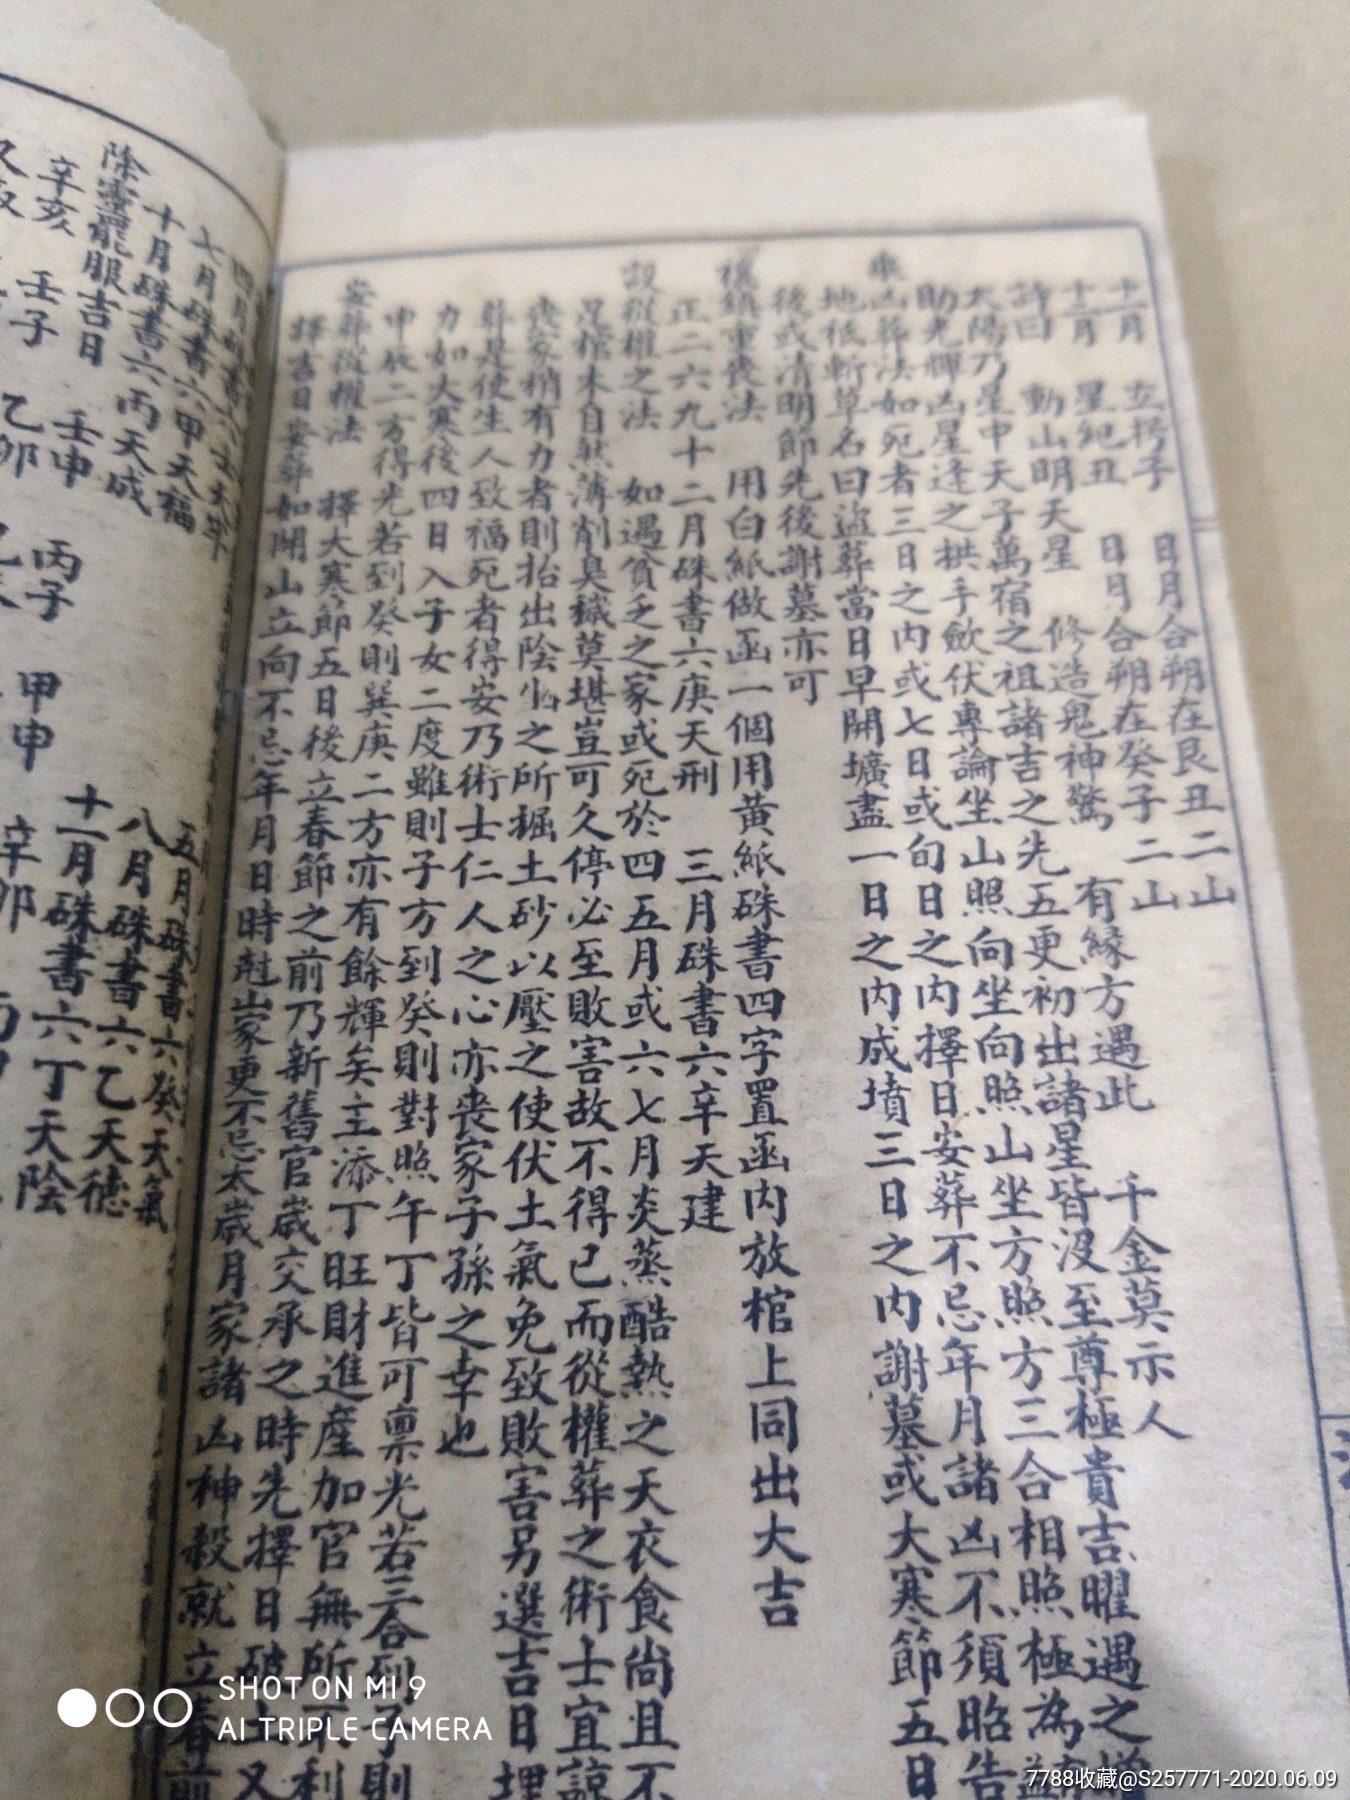 十一月 玄枵子 日月合朔在艮丑二山
十二月 星紀丑 日月合朔在癸子二山
詩曰 動山明天星 修造鬼神驚 有緣方遇此 千金莫示人
太陽乃星中天子萬宿之祖諸吉之先五更初出諸星皆沒至尊極貴吉曜遇之增
助光輝凶星逢之拱手歛伏專論坐山照向坐向照山坐方照方三合相照極為
乘凶葬法如死者三日之內或七日或旬日之內擇日安葬不忌年月諸凶不須昭告
地祗斬草名曰盜葬當日早開壙盡一日之內成墳三日之內謝墓或大寒節五日
後或清明節先後謝墓亦可
禳鎮重喪法 用白紙做函一個用黃紙硃書四字置函內放棺上同出大吉
正二六九十二月硃書六庚天刑 三月硃書六辛天建
設從權之法 如遇貧乏之家或死於四五月或六七月炎蒸酷熱之天衣食尚且不
足棺木自然薄削臭穢莫堪豈可久停必至敗害故不得已而從權葬之術士宜諒
喪家稍有力者則抬出陰山之所掘土砂以壓之使伏土氣免致敗害另選吉日埋
葬是使生人致福死者得安乃術士仁人之心亦喪家子孫之幸也
力如大寒後四日入子女二度雖則子方到癸則對照午丁皆可禀光若三合到
申辰二方得光若到癸則巽庚二方亦有餘輝矣主添丁旺財進產加官無所不利
安葬從權法 擇大寒節五日後立春節之前乃新舊官歲交承之時先擇日破土又
擇吉日安葬如開山立向不忌年月日時尅山家更不忌太歲月家諸凶神殺就立春前
四月硃書六壬天牢 五月硃書六癸天氣
七月硃書六甲天福 八月硃書六乙天德
十月硃書六丙天成 十一月硃書六丁天陰
除靈罷服吉日 壬申 丙子 甲申
辛亥 壬子 乙卯